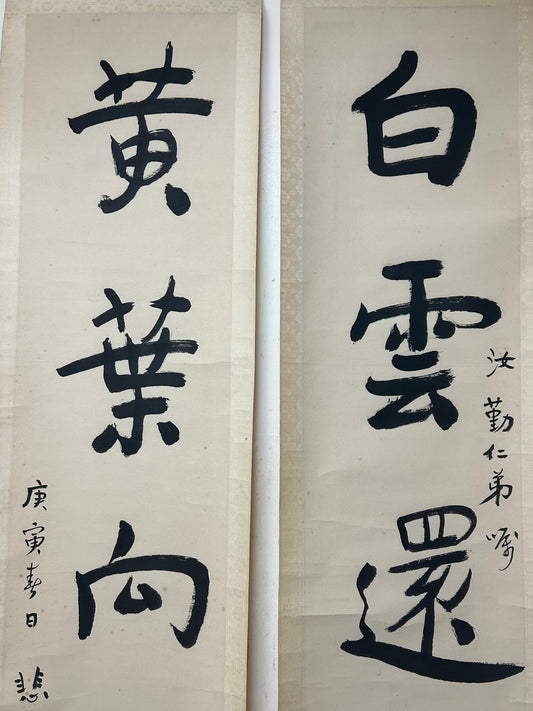 白雲還
汝勤仁弟嘱
黄葉向
庚寅春日 悲